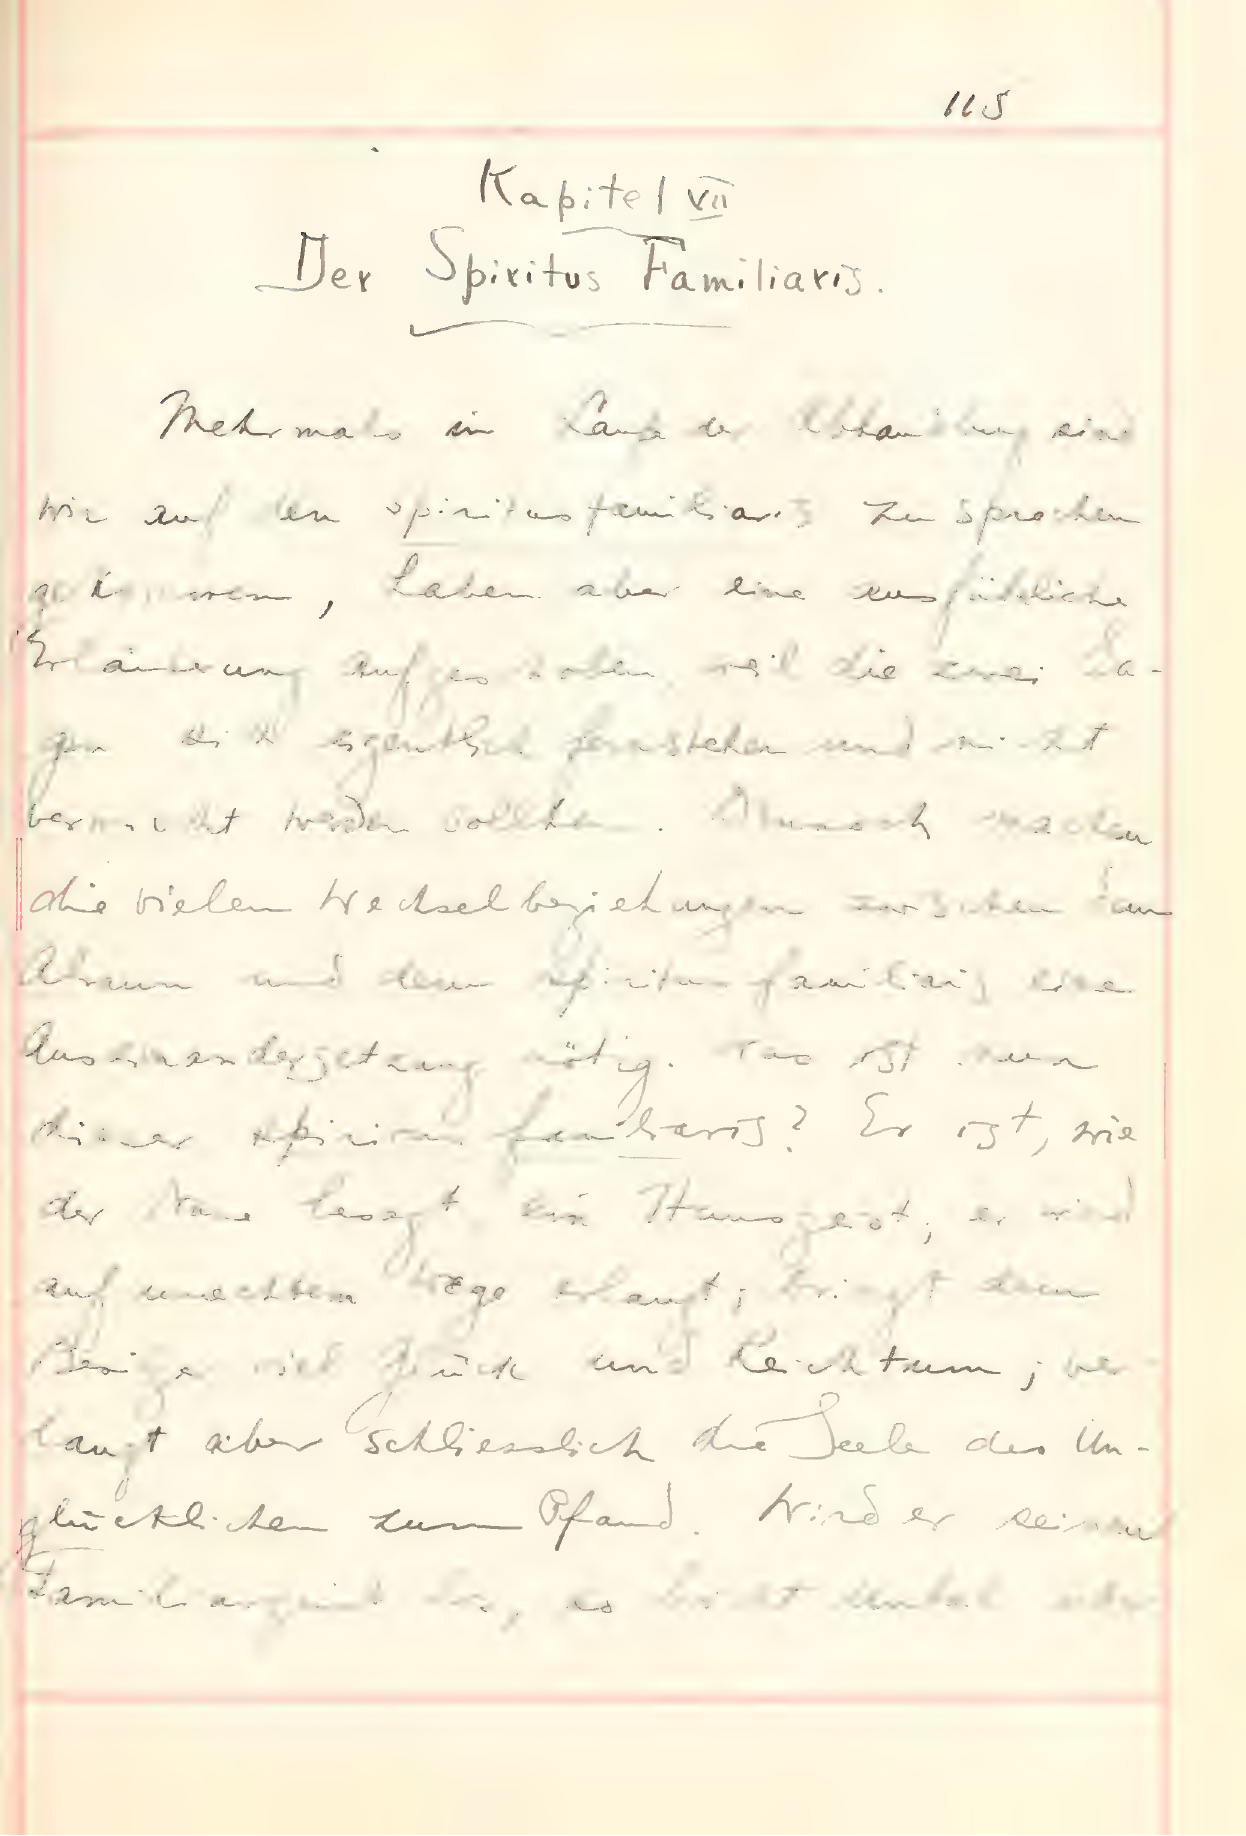 115
Kapitel VII
Der Spiritus Familiaris.
Mehrmals im Laufe der Abhandlung sind
wir auf den spiritus familiaris zu sprechen
gekommen, haben aber eine ausführliche
Erläuterung aufgeschoben weil die zwei Sa-
gen sich eigentlich fernstehen und nicht
vermischt werden sollten. Dennoch machen
die vielen Wechselbeziehungen zwischen dem
Alraun und dem spiritus familiaris eine
Auseinandersetzung nötig. Was ist nun
dieser spiritus familiaris? Er ist, wie
der Name besagt ein Hausgeist, er wird
auf unechtem Wege erlangt; bringt dem
Besitzer viel Glück und Reichtum; ver-
langt aber schliesslich die Seele des Un-
glücklichen zum Pfand. Wird er seinen
Familiargeist los, so